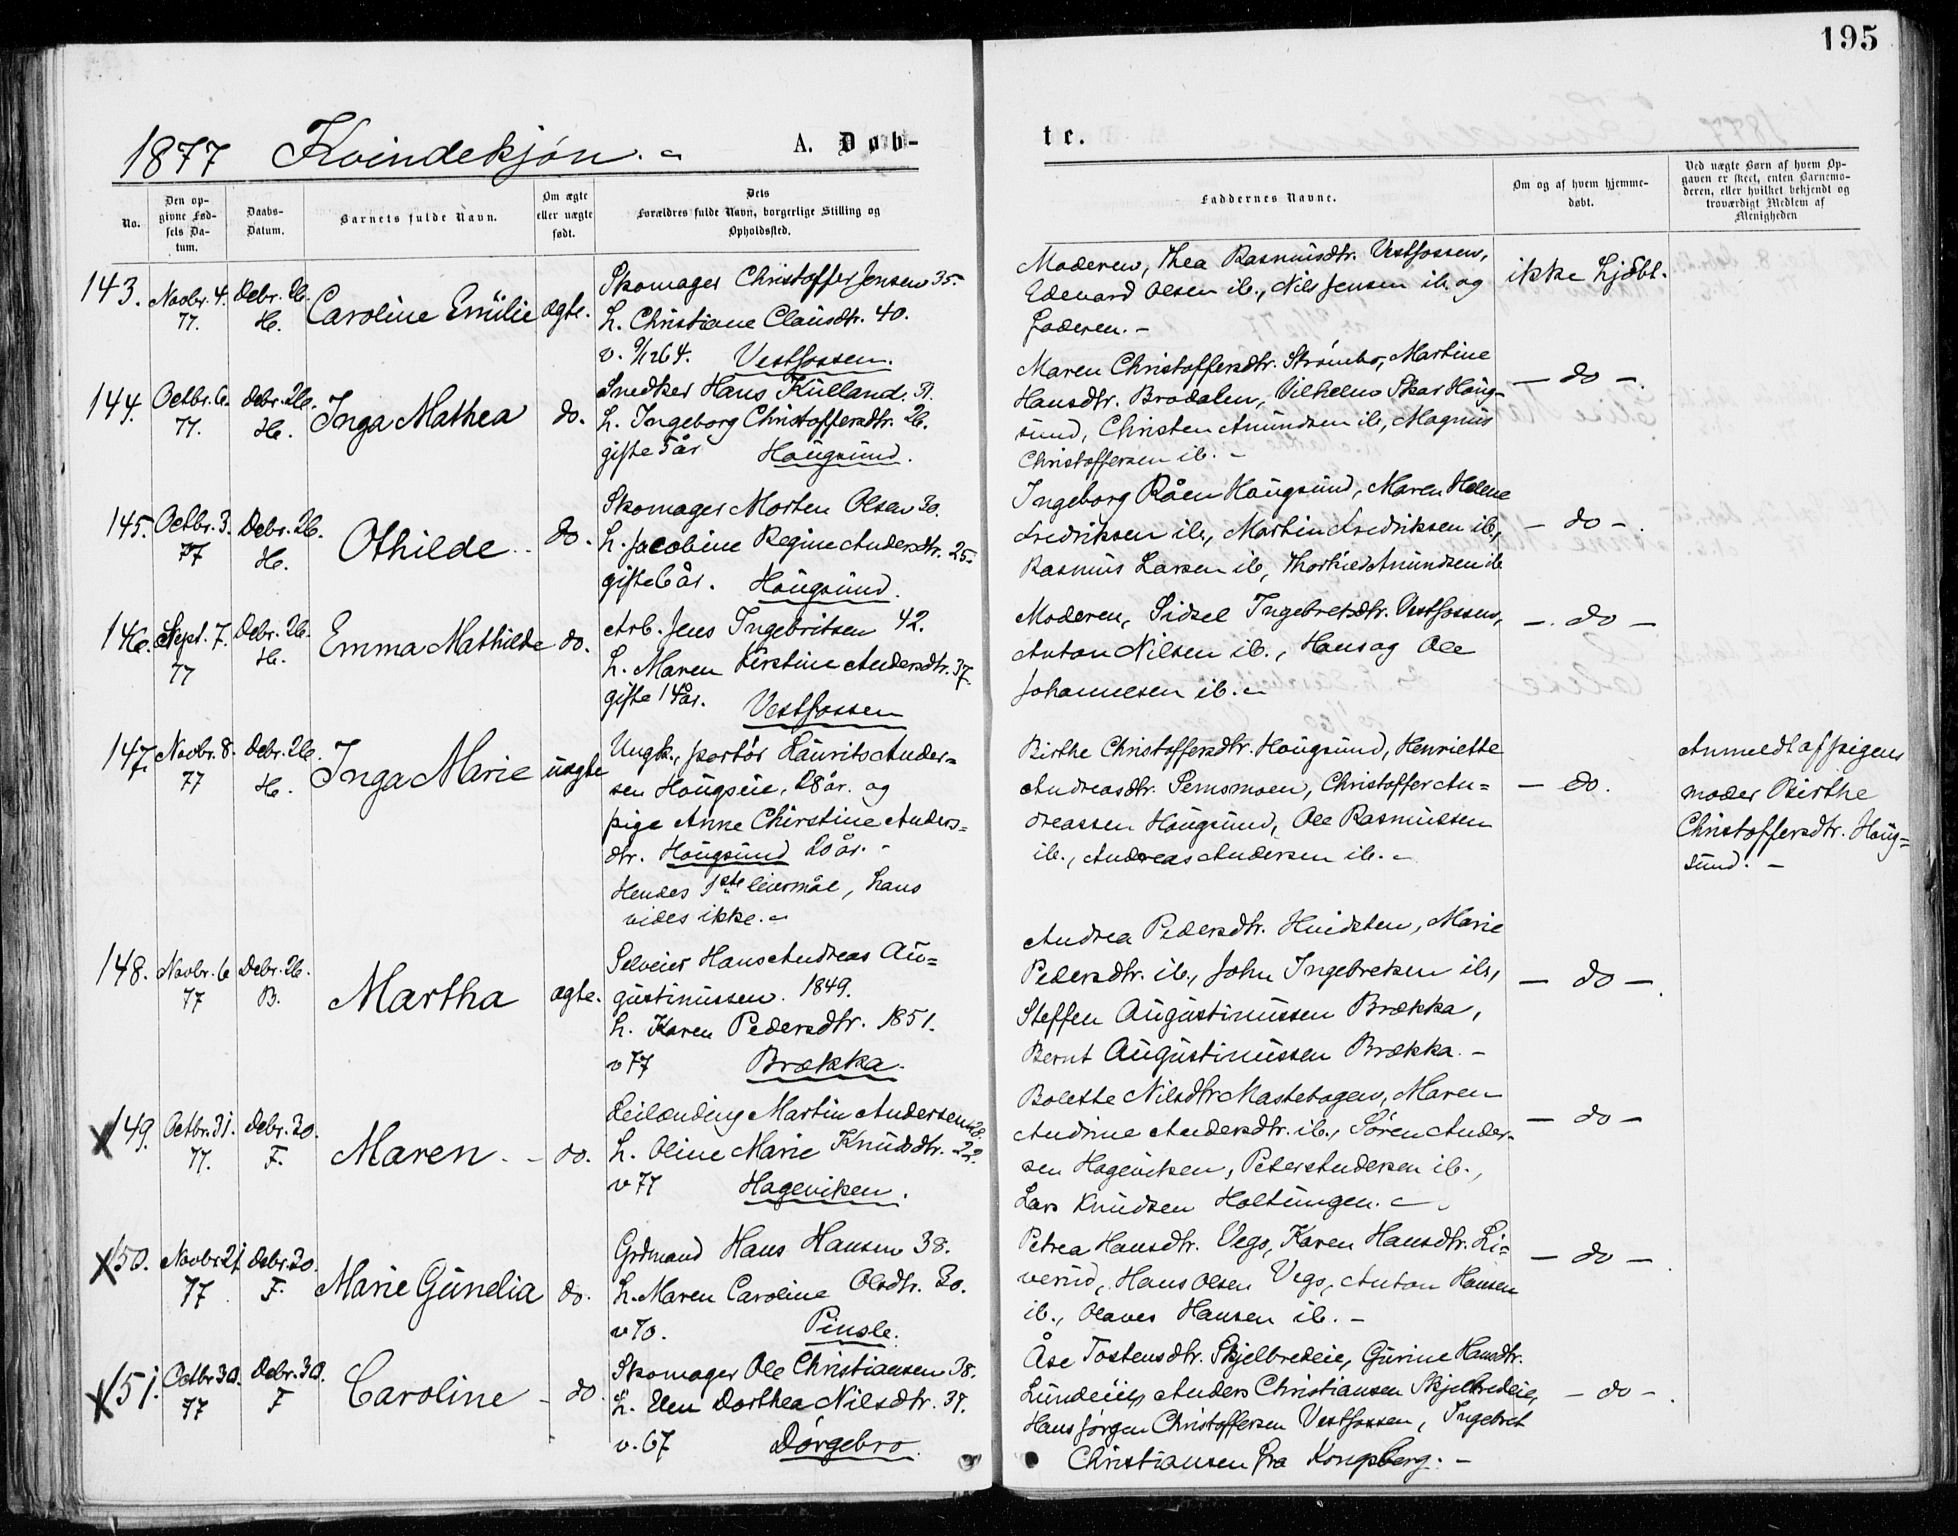 195
1877 Kvindekjøn. A. Døb-
te.
No.
Den op-
givne Fød-
sels Da-
tum.
Daabs-
Datum.
Barnets fulde Navn.
Om ægte
eller uægte
født.
Dets
Forældres fulde Navn, borgerlige Stilling og
Opholdssted.
Faddernes Navne.
Om og af hvem hjemme-
døbt.
Ved uægte Børn af hvem Op-
gaven er skeet, enten Barnemo-
deren, eller hvilket bekjendt og
troværdigt Medlem af
Menigheden
143. Novbr. 4. 77. Debr. 26. H. Caroline Emilie ægte.
Skomager Christoffer Jensen 35.
h. Christiane Clausdtr. 40.
v. 64. Vestfossen.
Moderen, Thea Rasmusdtr. Vestfossen,
Edevard Olsen ib., Nils Jensen ib. og
Faderen. –
ikke hjdbt.
144. Octbr. 6. 77. Debr. 26. H. Inga Mathea do.
Snedker Hans Kulland. 31.
h. Ingeborg Christoffersdtr. 26.
gifte 5 år Hougsund.
Maren Christoffersdtr. Strømbo, Martine
Hansdtr. Brodalen, Vilhelm Skar Houg-
sund, Christen Amundsen ib., Magnus
Christoffersen ib. –
– do –.
145. Octbr. 3. 77 Debr. 26. H. Othilde do.
Skomager Morten Olsen 30.
h. Jacobine Regine Andersdtr. 25.
gifte 6 år. Hougsund.
Ingeborg Råen Hougsund, Maren Helene
Fredriksen ib., Martin Fredriksen ib.,
Rasmus Larsen ib., Thorkild Amundsen ib
– do –.
146. Sept. 7. 77 Debr. 26. H. Emma Mathilde do.
Arb. Jens Ingebritsen 42.
h. Maren Kirstine Andersdtr. 37.
gifte 14 år. Vestfossen
Moderen, Sidsel Ingebretsdtr. Vestfossen,
Anton Nilsen ib., Hans og Ole
Johannesen ib. –
– do –
147. Novbr. 8. 77 Debr. 26. H. Inga Marie uægte
Ungk., portør Laurits Ander=
sen Hougseie, 28 år. og
pige Anne Chirstine Anders=
dtr. Hougsund 20 år. –
Hendes 1ste leiermål, hans
vides ikke. –
Birthe Christoffersdtr. Hougsund, Henriette
Andreasdtr. Semsmoen, Christoffer An=
dreassen Hougsund, Ole Rasmussen
ib., Andreas Andersen ib. –
– do.
Anmeldt af pigens
moder Birthe
Christoffersdtr. Houg=
sund. –
148. Novbr. 6 77 Debr. 26. B. Martha ægte.
Selveier Hans Andreas Au=
gustinussen. 1849.
h. Karen Pedersdtr. 1851.
v 77 Brækka.
Andrea Pedersdtr. Hvidsten, Marie
Pedersdtr. ib., John Ingebretsen ib.,
Steffen Augustinussen Brækka,
Bernt Augustinussen Brækka. –
– do –.
X 149. Octbr. 31. 77. Debr. 30. F. Maren. – do.
Leilænding Martin Andersen 28.
h. Oline Marie Knudsdtr. 22.
v 77 Hageviken.
Bolette Nilsdtr. Mastebogen, Maren
Andrine Andersdtr. ib., Søren Ander-
sen Hageviken, Peter Andersen ib.,
Lars Knudsen Holtungen. –
– do –
X 150. Novbr. 21. 77 Debr. 30. F. Marie Gunelia do.
Grdmand Hans Hansen 38.
h. Maren Caroline Olsdtr. 30.
v 70. Pinsle.
Petrea Hansdtr. Vego, Karen Hansdtr. Li=
verud, Hans Olsen Vego, Anton Hansen
ib., Olaves Hansen ib. –
– do –.
X 151. Octbr. 30. 77 Debr. 30. F Caroline – do
Skomager Ole Christiansen 38.
h. Elen Dorthea Nilsdtr. 37.
v. 67 Dørgebro.
Åse Tostensdtr. Skjelbredeie, Gurine Hansdtr.
Lundeeie, Anders Christiansen Skjelbredeie,
Hans Jørgen Christoffersen Vestfossen, Ingebret
Christiansen fra Kongsberg. –
– do –.